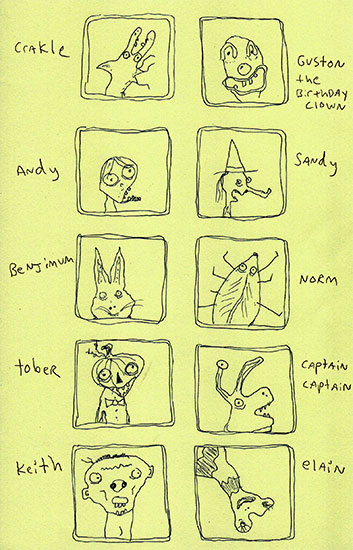 Crakle
Guston
the
Birthday
Clown
Andy
Sandy
Benjimum
Norm
tober
Captain
Captain
Keith
elain